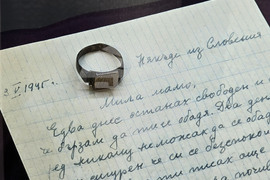 Някъде из Словения
3 V. 1945 г.
Мила мамо,
Едва днес останах свободен и
бързам да ти се обадя. Два ден
никому неможах да се обад
че си се безпокои
ти писах още